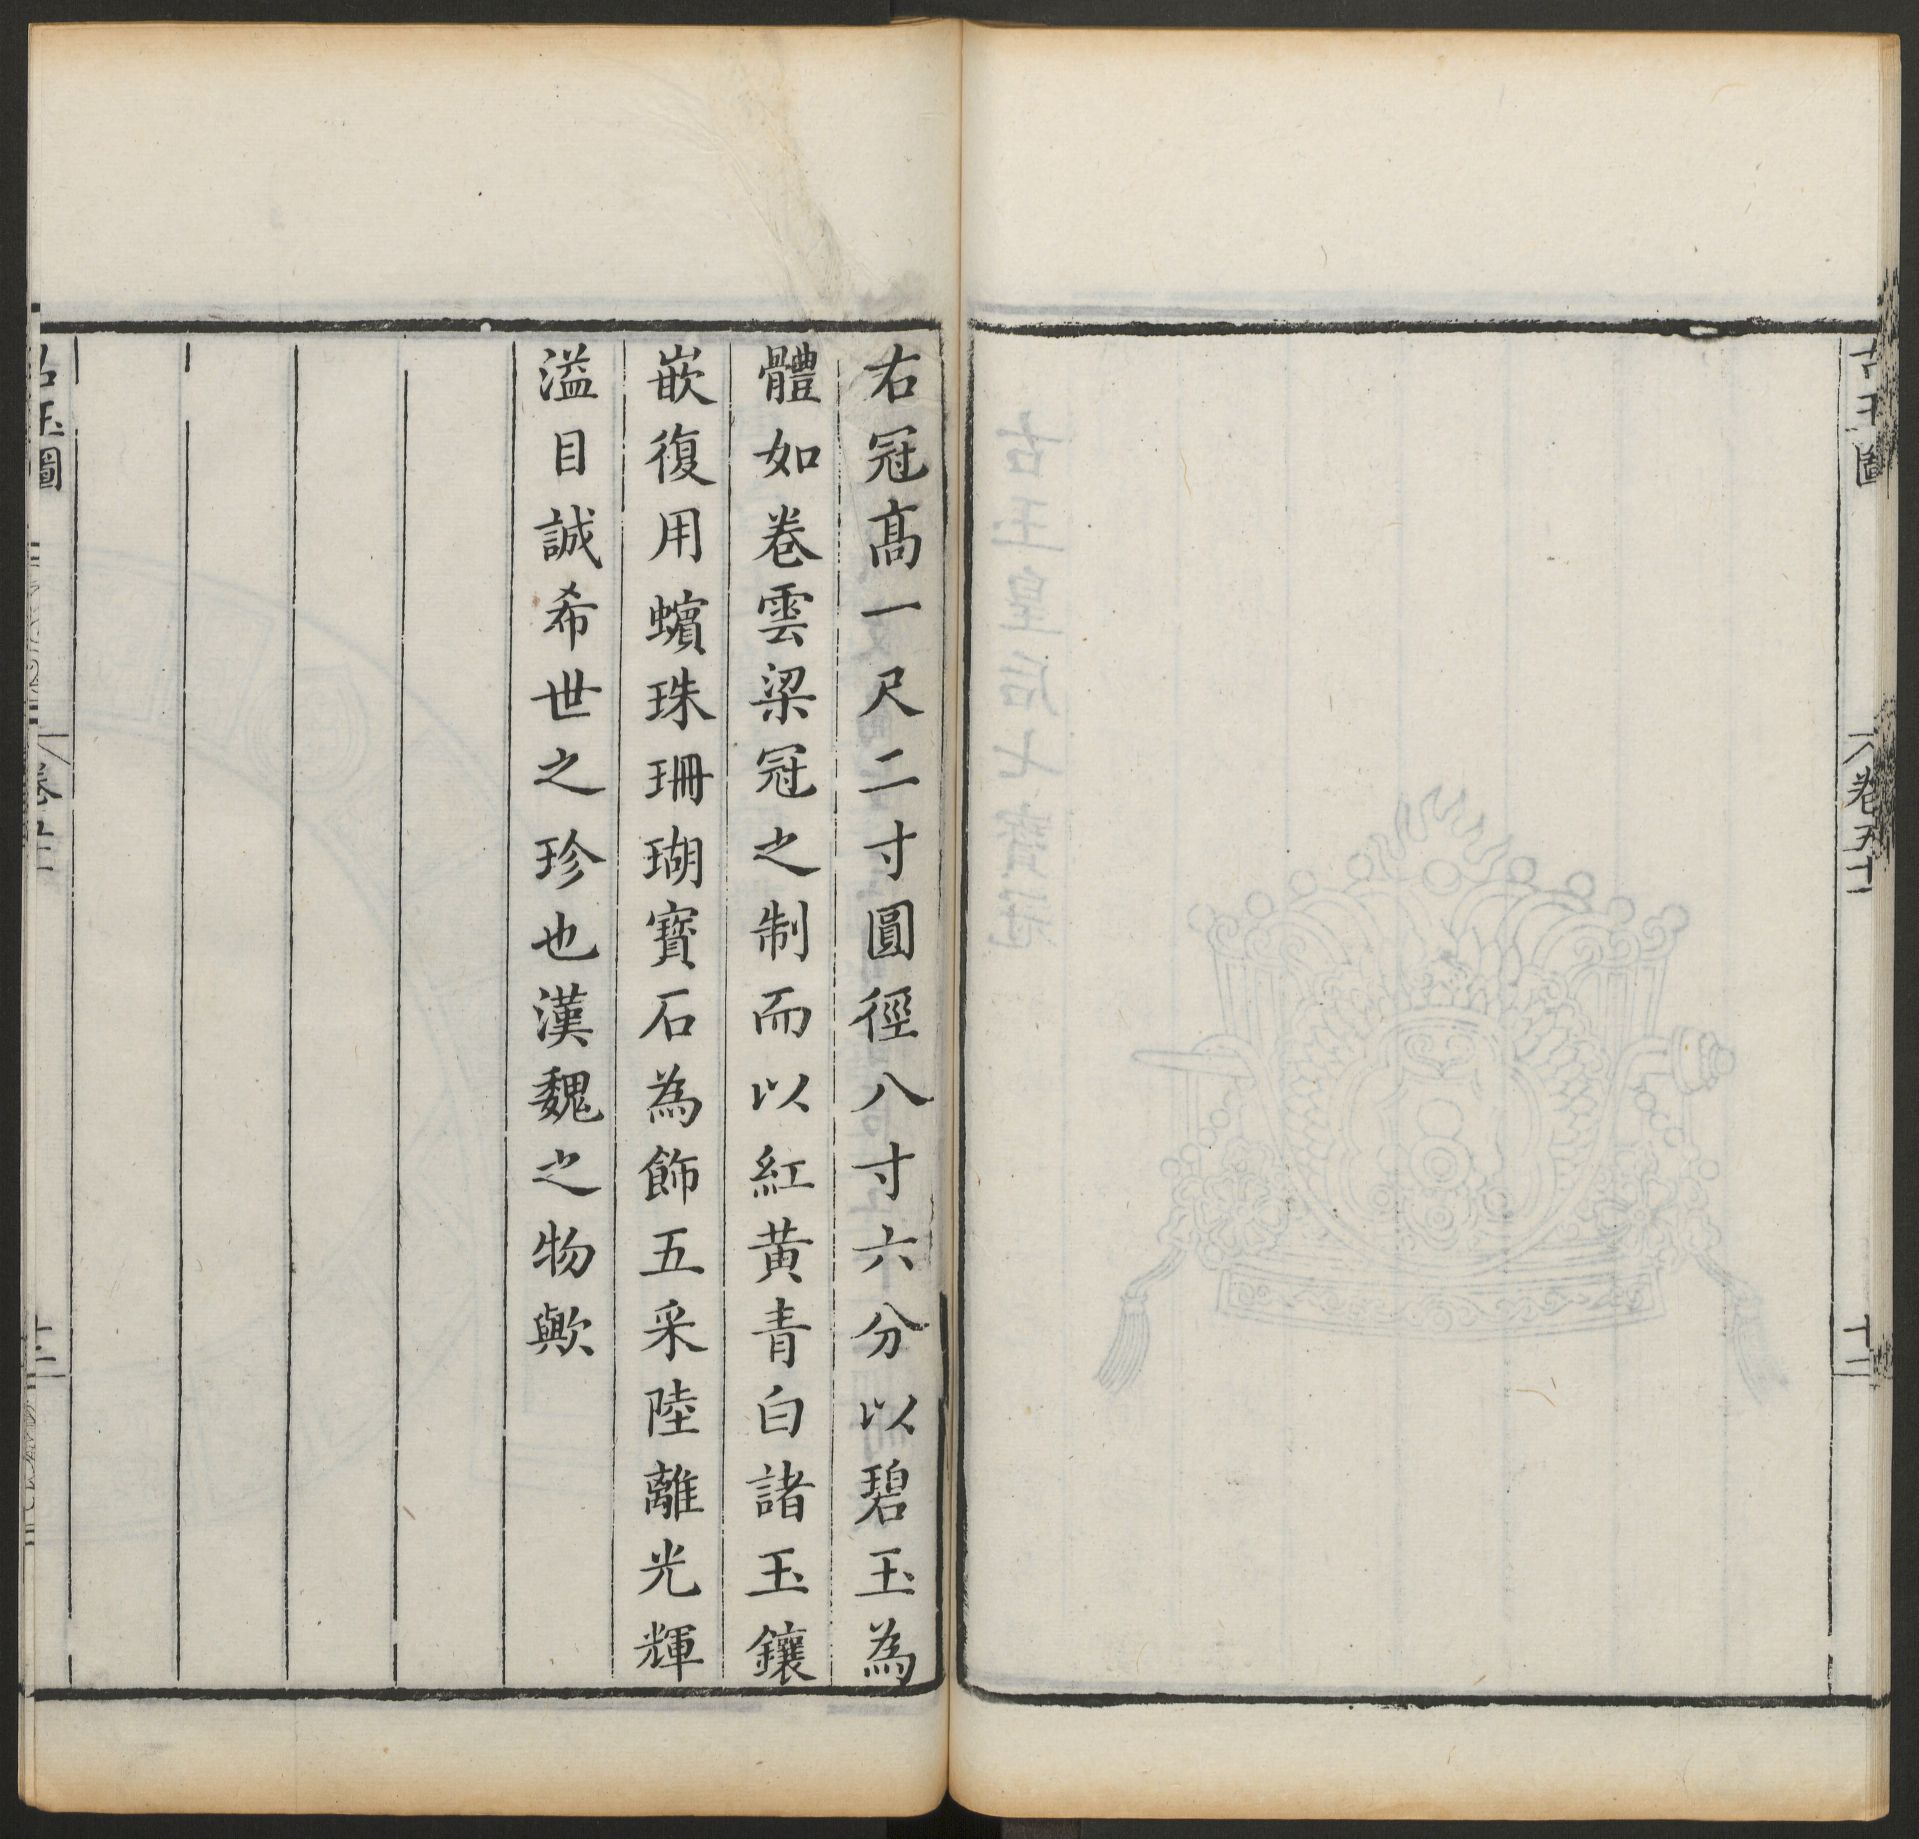 古玉圖
卷五十
十二
右冠髙一尺二寸圓徑八寸六分以碧玉為
體如卷雲梁冠之制而以紅黃青白諸玉鑲
嵌復用蠙珠珊瑚寶石為飾五采陸離光輝
溢目誠希世之珍也漢魏之物歟
古玉圖